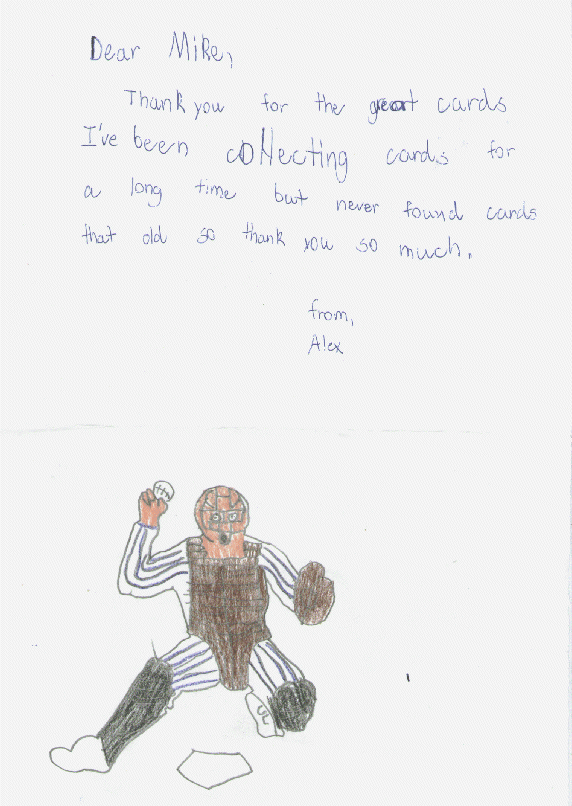 Dear Mike,
Thank you for the great cards
I've been collecting cards for
a long time but never found cards
that old so thank you so much.
from,
Alex